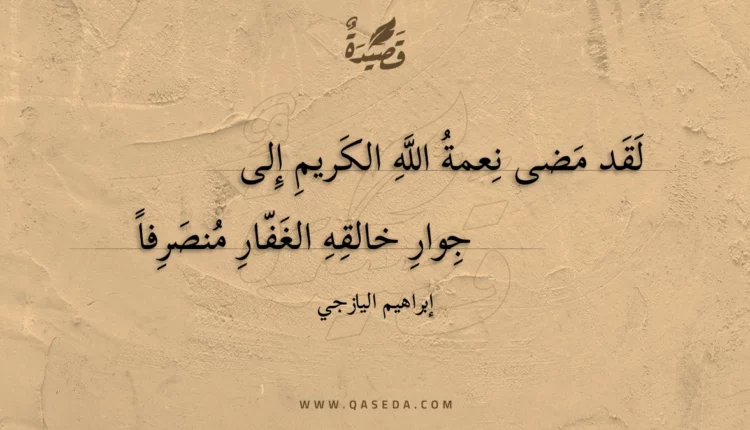 قَصِيْدَةٌ
لَقَد مَضى نِعمةُ اللَّهِ الكَريمِ إِلى
جِوارِ خالقِهِ الغَفّارِ مُنصَرِفاً
إبراهيم اليازجي
WWW.QASEDA.COM